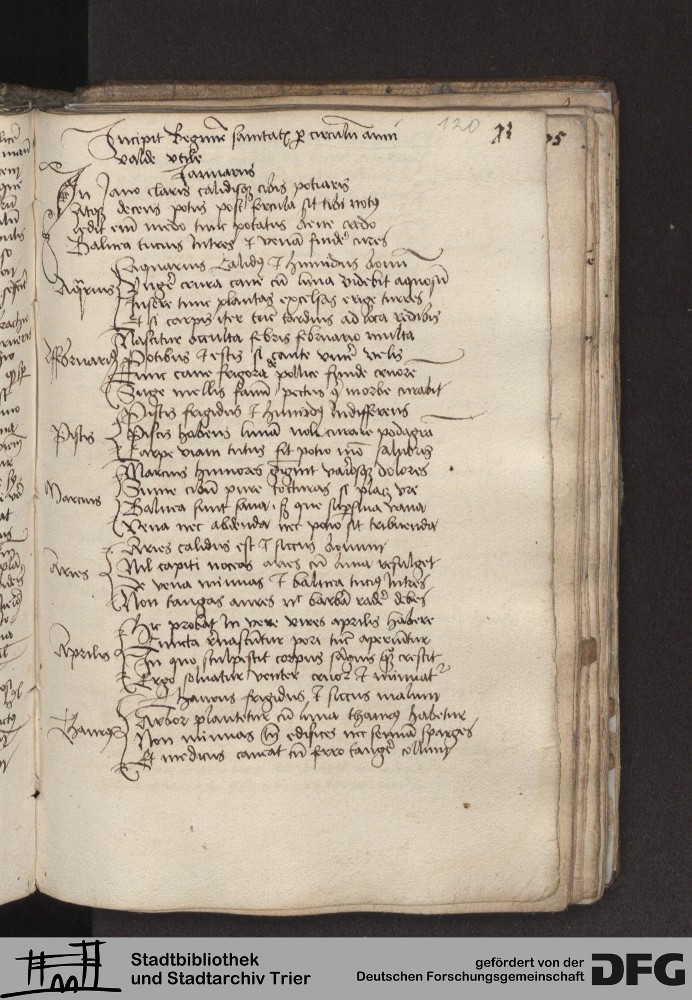 Incipit Regimen sanitatis per circulum anni
valde utile
Januarius
In Jano claris calidisque cibis potiaris
Atque decens potus post fercula sit tibi notus
Ledit enim medo tunc potatus bene credo
Balnea tutius intres et venam findere cures
Aquarius Calidus et humidus bonum
Aquarius Ungere crura cave cum luna videbit aquosum
Insere tunc plantas excelsas erige turres
Et si carpis iter tunc tardius ad loca redibis
Nascitur occulta febris februario multa
Februarius Potibus et escis si caute vivere velis
Tunc cave frigora de pollice funde cruorem
Suge mellis favum pectus qui morbo curabit
Piscis frigidus et humidus Indifferens
Piscis Piscis habens lunam noli curare podagram
Carpe viam tutus fit potio salubris
Marcius humores gignit variosque dolores
Marcius Sume cibum pure cocturas si placet ure
Balnea sunt sana sed que superflua vana
Vena nec abdenda nec potio sit tribuenda
Aries calidus est et siccus bonum
Aries Nil capiti noceas aries cum luna refulget
De vena minuas et balnea tutius intres
Non tangas aures nec barbam radere debes
Hic probat in vere vires aprilis habere
Aprilis Cuncta renascuntur pori tunc aperiuntur
In quo scalpescit corpus sanguis quoque crescit
Ergo solvatur venter cruorque minuatur
Thaurus frigidus et siccus malum
Thaurus Arbor plantetur cum luna thaurus habetur
Non minuas tamen edifices nec semina sparges
Et medicus caveat cum ferro tangere collum
120
5
Stadtbibliothek
und Stadtarchiv Trier
gefördert von der
Deutschen Forschungsgemeinschaft
DFG